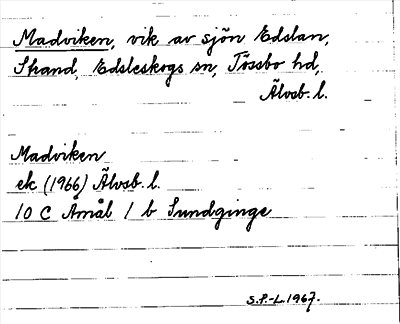 Madviken, vik av sjön Edslan,
Strand, Edsleskogs sn, Tössbo hd,
Älvsb. l.
Madviken
ek (1966) Älvsb. l.
10 C Åmål 1 b Sundginge
S.P.-L. 1967.